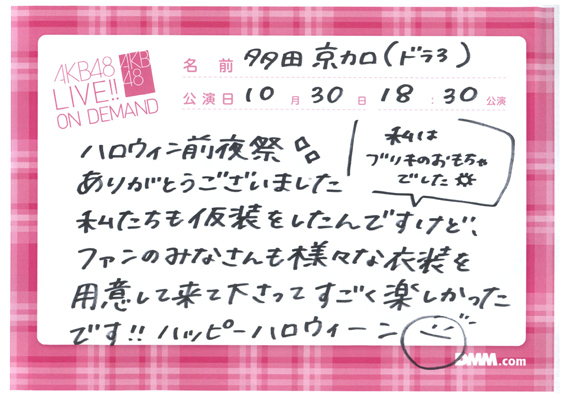 AKB48
LIVE!!
ON DEMAND
AKB
48
名前 多田 京加(ドラ3)
公演日 10月30日 18:30公演
ハロウィン前夜祭
ありがとうございました
私は
ブリキのおもちゃ
でした
私たちも仮装をしたんですけど、
ファンのみなさんも様々な衣装を
用意して来て下さってすごく楽しかった
です!! ハッピーハロウィーン
DMM.com